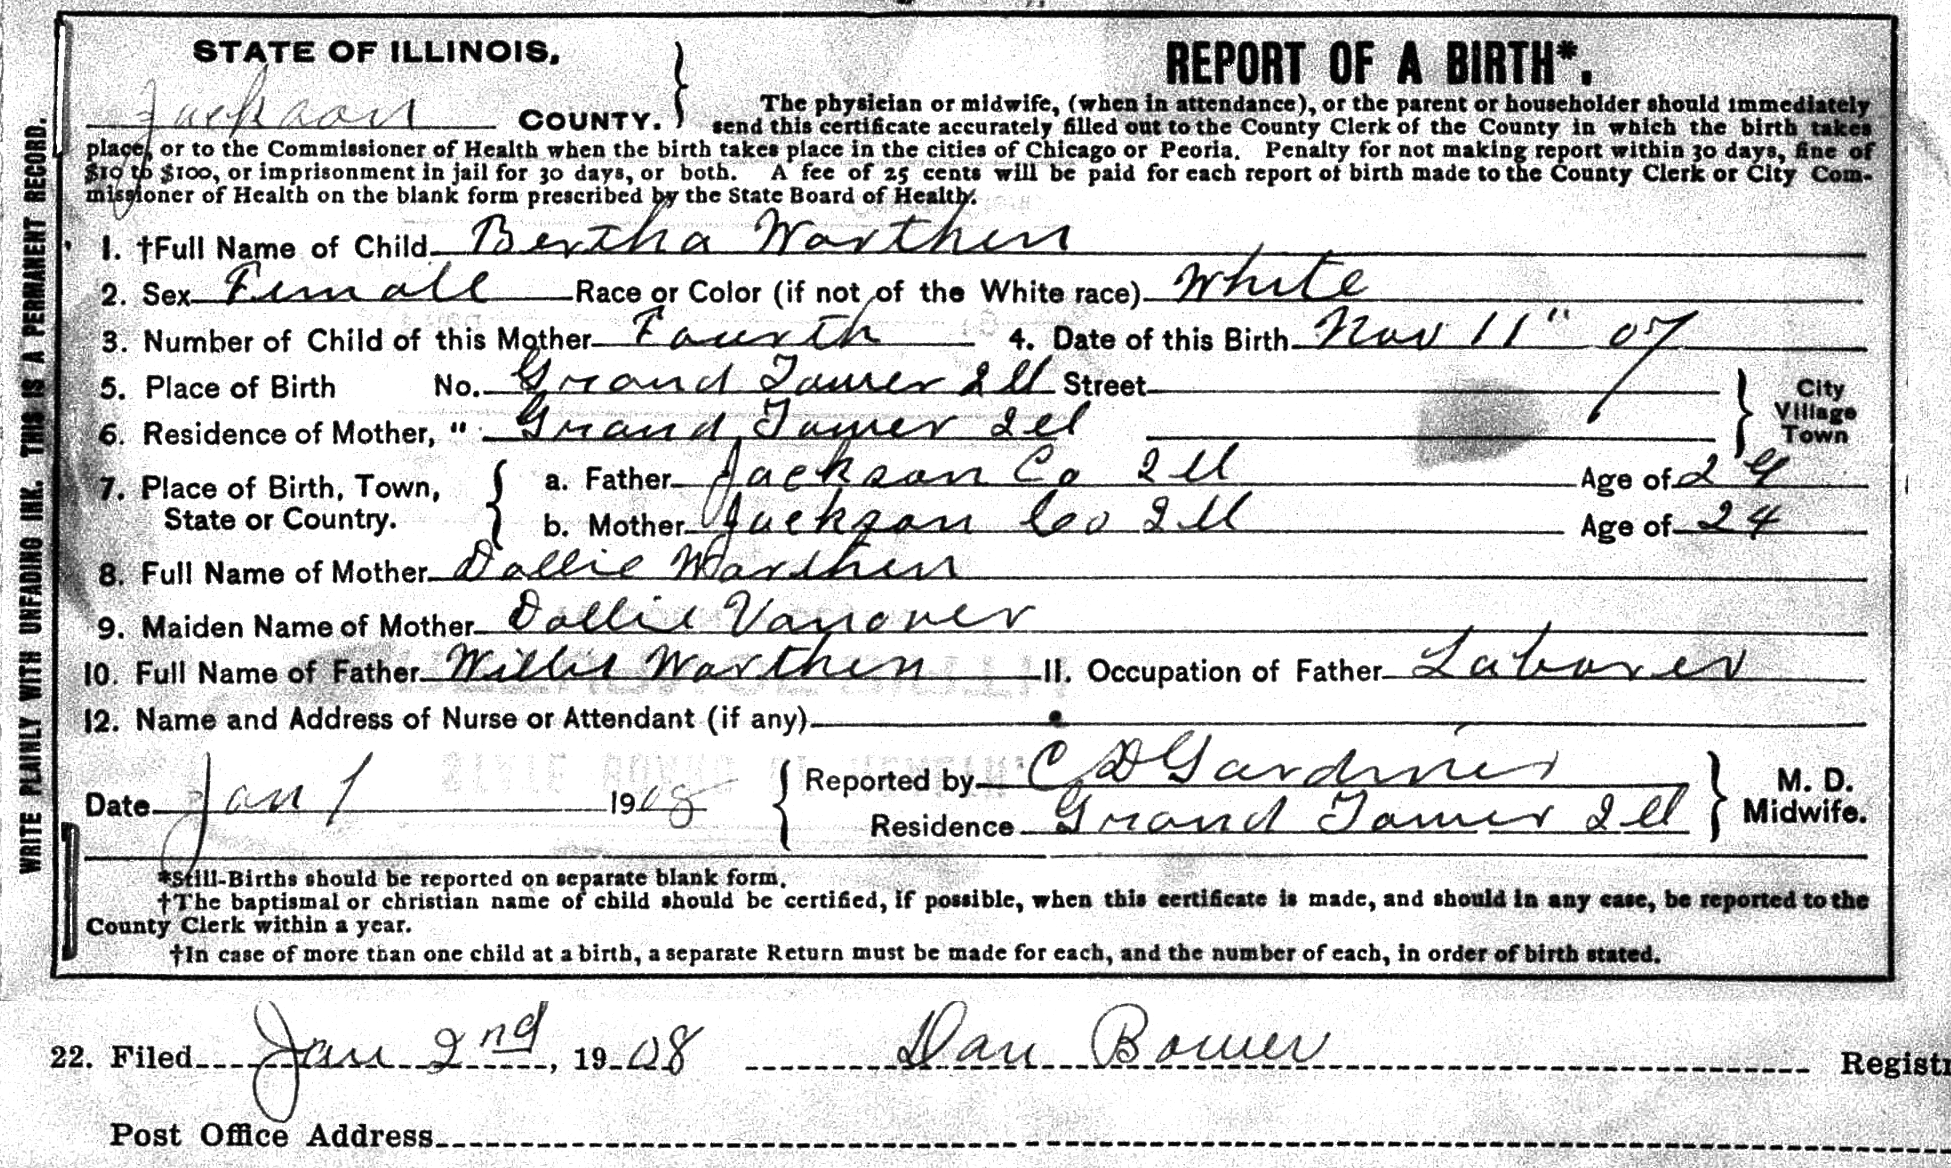 STATE OF ILLINOIS,
Jackson COUNTY.
REPORT OF A BIRTH*.
The physician or midwife, (when in attendance), or the parent or householder should immediately
send this certificate accurately filled out to the County Clerk of the County in which the birth takes
place, or to the Commissioner of Health when the birth takes place in the cities of Chicago or Peoria. Penalty for not making report within 30 days, fine of
$10 to $100, or imprisonment in jail for 30 days, or both. A fee of 25 cents will be paid for each report of birth made to the County Clerk or City Com-
missioner of Health on the blank form prescribed by the State Board of Health.
WRITE PLAINLY WITH UNFADING INK. THIS IS A PERMANENT RECORD.
1. †Full Name of Child Bertha Worthen
2. Sex Female Race or Color (if not of the White race) White
3. Number of Child of this Mother Fourth 4. Date of this Birth Nov 11" 07
5. Place of Birth No. Grand Tower Ill Street
6. Residence of Mother, " Grand Tower Ill
City
Village
Town
7. Place of Birth, Town, State or Country.
a. Father Jackson Co Ill Age of 29
b. Mother Jackson Co Ill Age of 24
8. Full Name of Mother Dollie Worthen
9. Maiden Name of Mother Dollie Vanover
10. Full Name of Father Willis Worthen 11. Occupation of Father Laborer
12. Name and Address of Nurse or Attendant (if any)
Date Jan 1 1908
Reported by C D Gardner
Residence Grand Tower Ill
M. D.
Midwife.
*Still-Births should be reported on separate blank form.
†The baptismal or christian name of child should be certified, if possible, when this certificate is made, and should in any case, be reported to the
County Clerk within a year.
†In case of more than one child at a birth, a separate Return must be made for each, and the number of each, in order of birth stated.
22. Filed Jan 2nd, 1908 Dan Bower Registr
Post Office Address